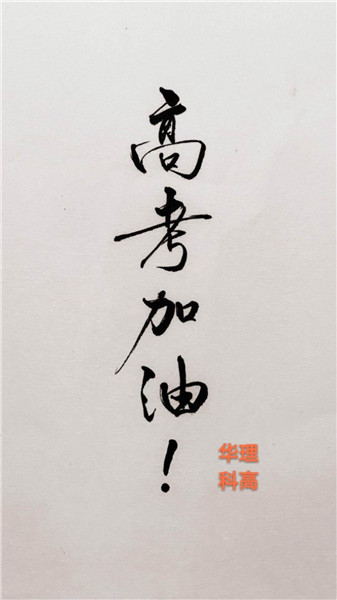 高考加油！
华理
科高